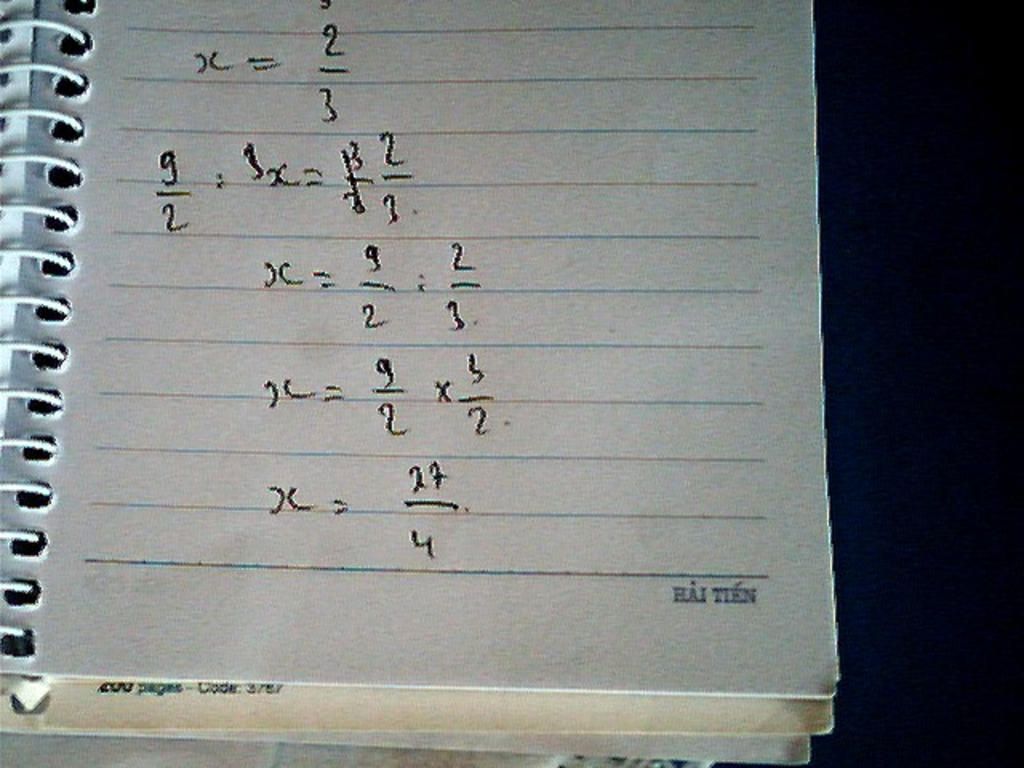 x = 2/3
9/2 : x = 2/3.
x = 9/2 : 2/3.
x = 9/2 x 3/2.
x = 27/4.
HẢI TIẾN
200 pages - Code: 3767